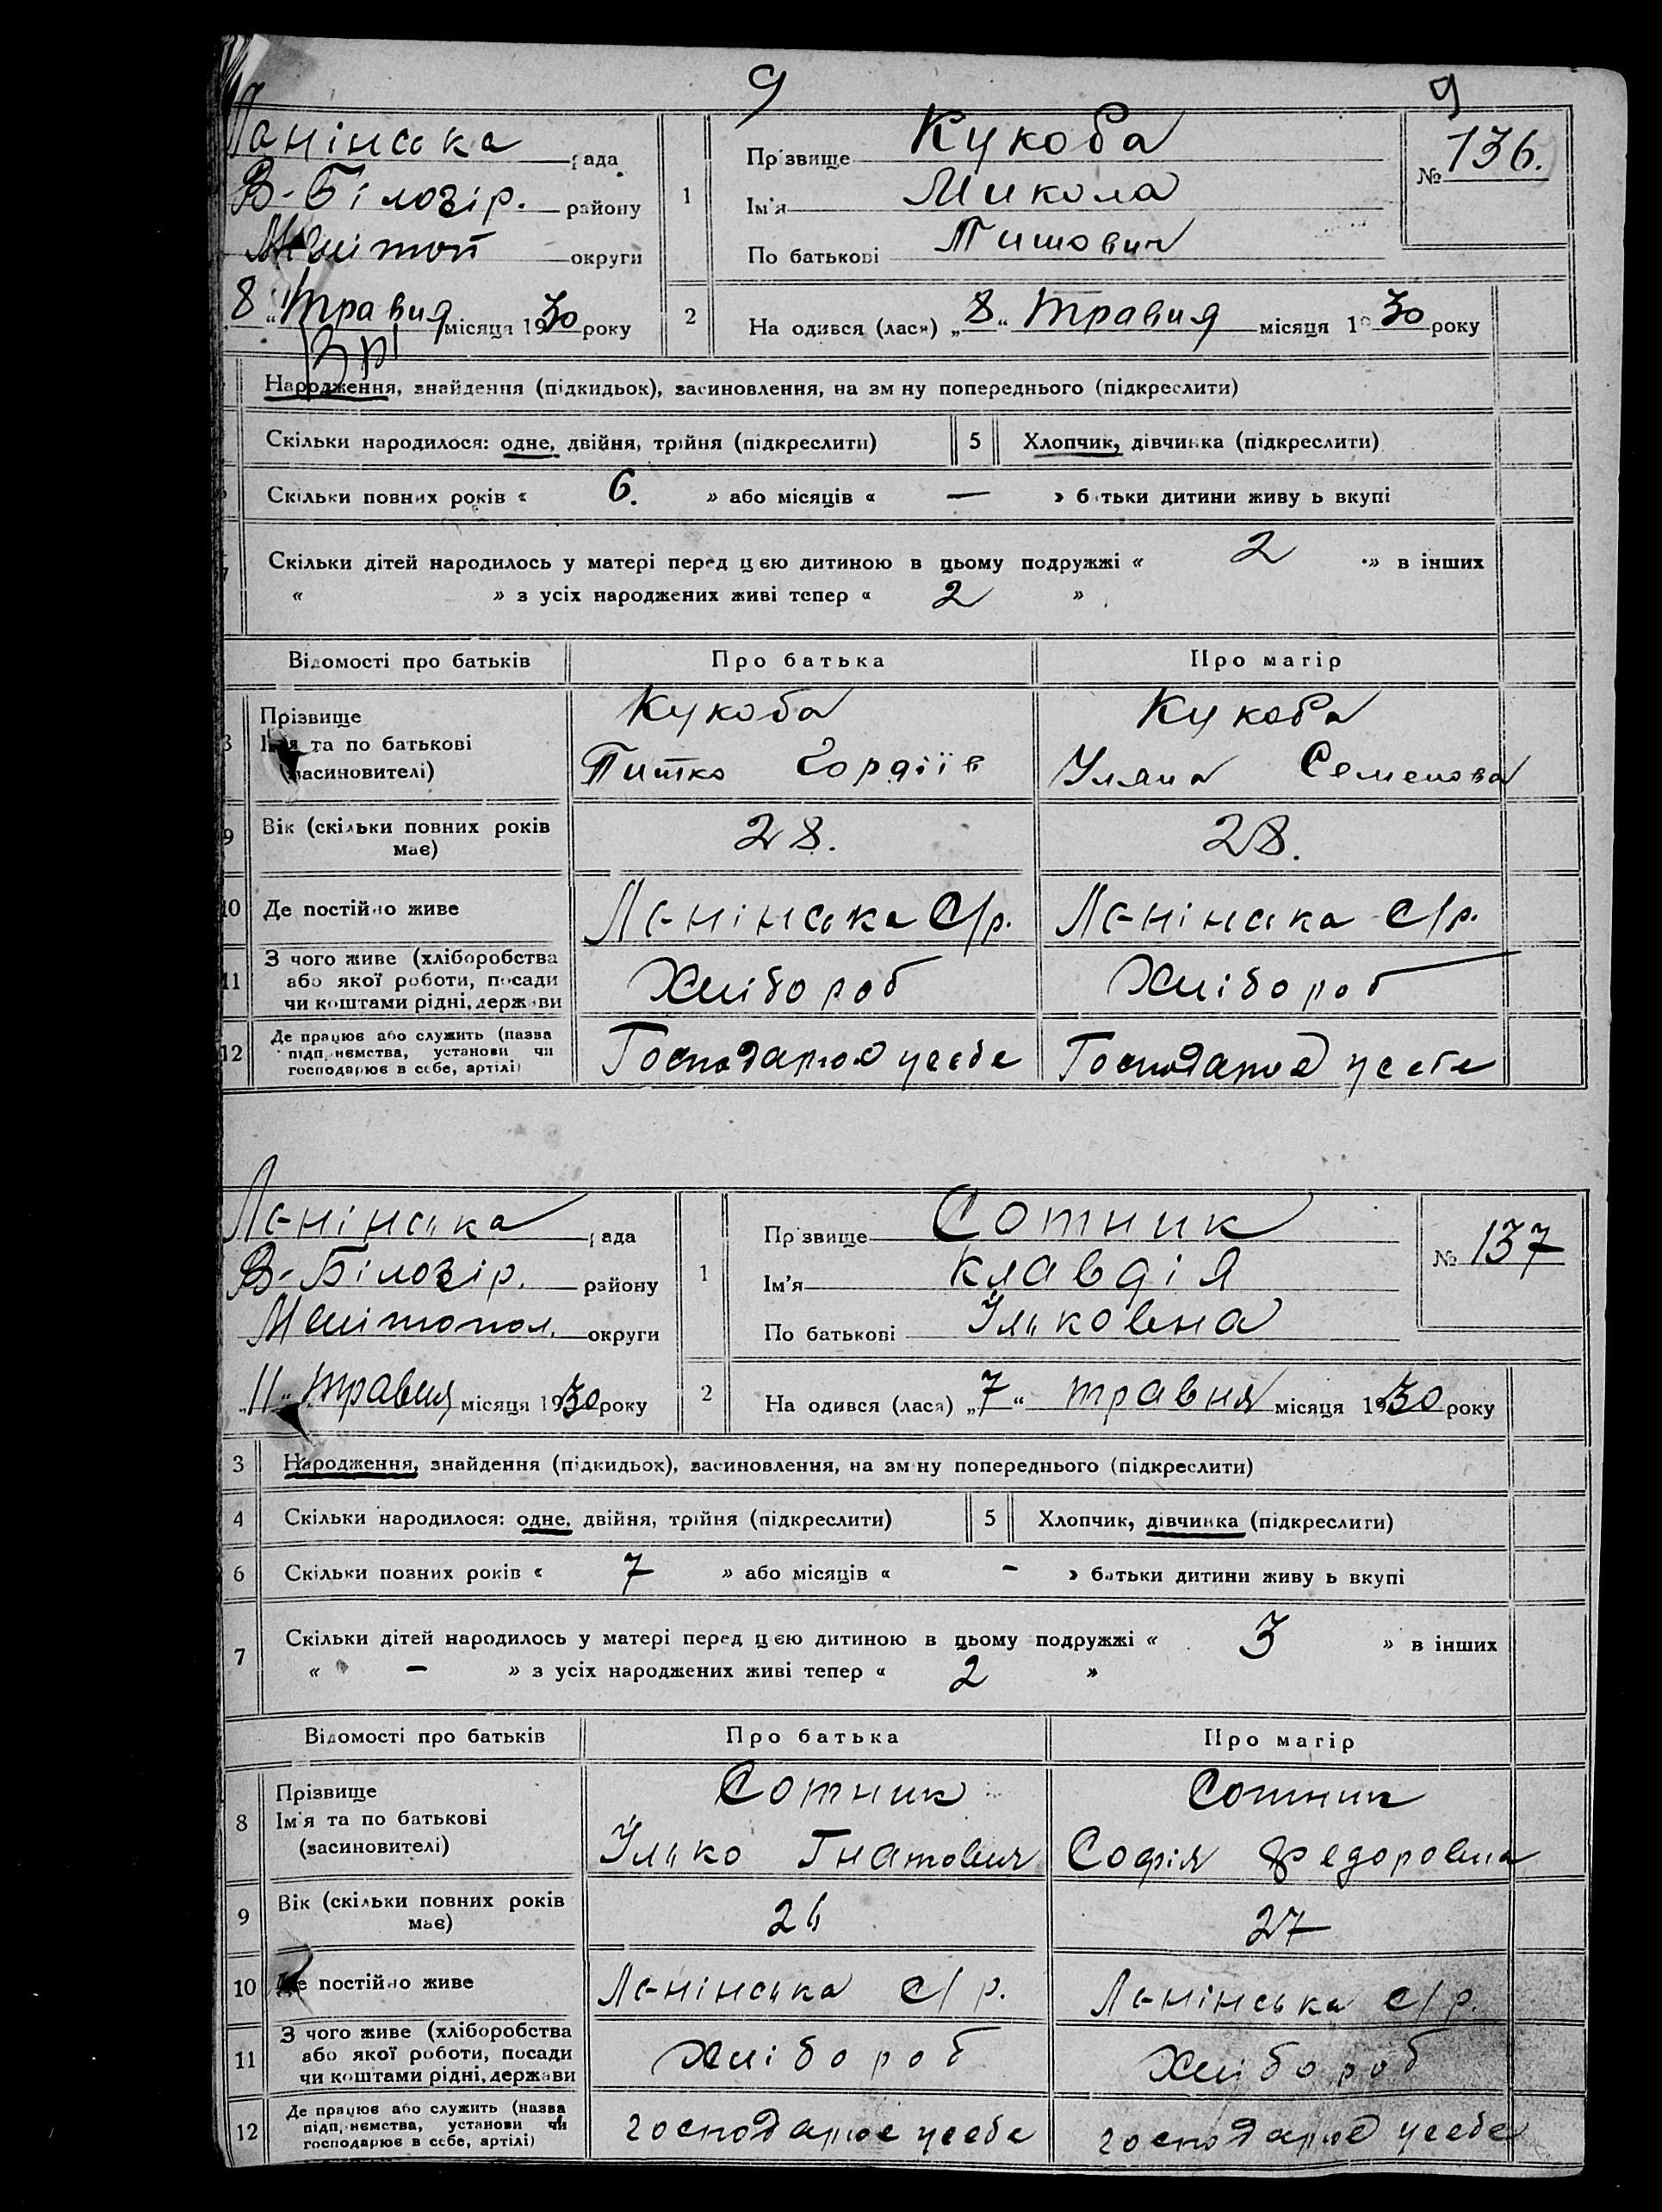 9 9
Ленінська рада
В-Білозір. району
Меліtоп округи
8 „ травня місяця 1930 року
1 Прізвище Кукоба
Ім'я Микола
По батькові Тишович
№ 136.
2 Народився (лася) „8“ травня місяця 1930 року
Народження, знайдення (підкидьок), засиновлення, на зміну попереднього (підкреслити)
Скільки народилося: одне, двійня, трійня (підкреслити) 5 Хлопчик, дівчинка (підкреслити)
Скільки повних років « 6. » або місяців « — » батьки дитини живуть вкупі
Скільки дітей народилось у матері перед цією дитиною в цьому подружжі « 2 » в інших
« » з усіх народжених живі тепер « 2 »
Відомості про батьків Про батька Про матір
Прізвище Кукоба Кукоба
8 Ім'я та по батькові Тишко Гордіїв Уляна Семенова
(засиновителі)
9 Вік (скільки повних років має) 28. 28.
10 Де постійно живе Ленінська С/р. Ленінська с/р.
11 З чого живе (хліборобства
або якої роботи, посади Хлібороб Хлібороб
чи коштами рідні, держави
12 Де працює або служить (назва
підприємства, установи чи Господарює у себе Господарює у себе
господарює в себе, артілі)
Ленінська рада
В-Білозір. району
Мелітопол. округи
„11“ травня місяця 1930 року
1 Прізвище Сотник
Ім'я Клавдія
По батькові Ільковна
№ 137
2 Народився (лася) „7“ травня місяця 1930 року
3 Народження, знайдення (підкидьок), засиновлення, на зміну попереднього (підкреслити)
4 Скільки народилося: одне, двійня, трійня (підкреслити) 5 Хлопчик, дівчинка (підкреслити)
6 Скільки повних років « 7 » або місяців « - » батьки дитини живуть вкупі
7 Скільки дітей народилось у матері перед цією дитиною в цьому подружжі « 3 » в інших
« - » з усіх народжених живі тепер « 2 »
Відомості про батьків Про батька Про матір
Прізвище Сотник Сотник
8 Ім'я та по батькові Ілько Гнатович Софія Федоровна
(засиновителі)
9 Вік (скільки повних років має) 26 27
10 Де постійно живе Ленінська с/р. Ленінська с/р.
11 З чого живе (хліборобства
або якої роботи, посади Хлібороб Хлібороб
чи коштами рідні, держави
12 Де працює або служить (назва
підприємства, установи чи господарює у себе господарює у себе
господарює в себе, артілі)